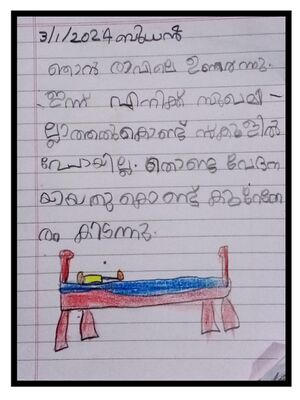 3/1/2024 ബുധൻ
ഞാൻ രാവിലെ ഉണർന്നു.
ഇന്ന് എനിക്ക് സുഖമി-
ല്ലാത്തതുകൊണ്ട് സ്കൂളിൽ
പോയില്ല. തൊണ്ട വേദന
യായതു കൊണ്ട് കുറേനേ
രം കിടന്നു.